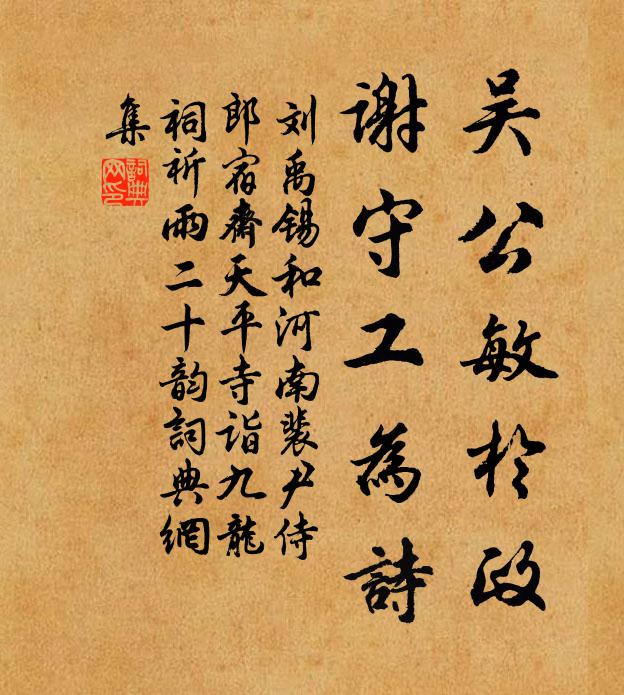 吴公敏於政
谢守工為詩
刘禹锡和河南裴尹侍
郎宿齋天平寺诣九龍
祠祈雨二十韵詞典網
集
詞典
网印